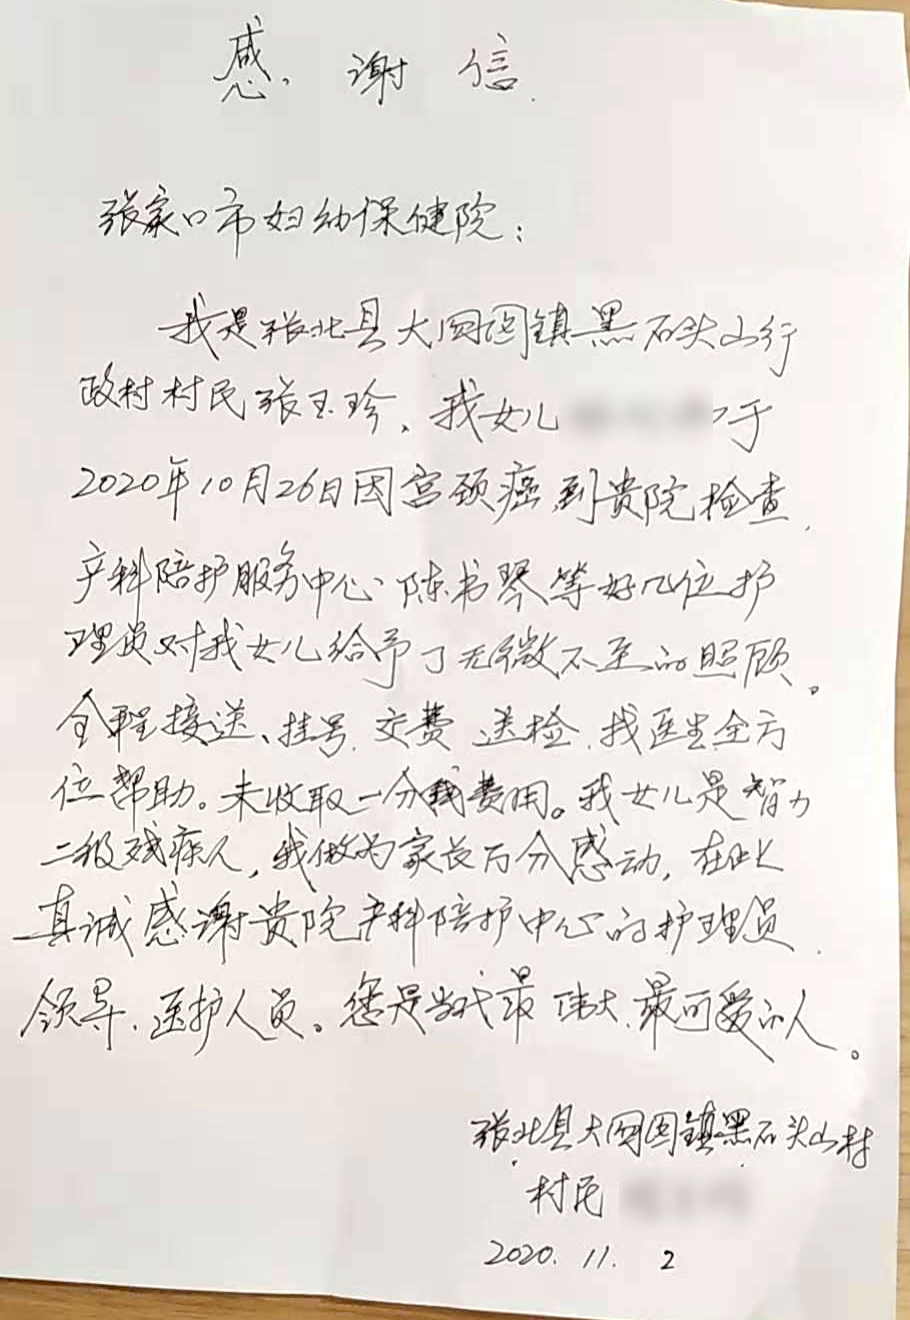 感谢信
张家口市妇幼保健院：
我是张北县大囫囵镇黑石头山行
政村村民张玉珍、我女儿 于
2020年10月26日因宫颈癌到贵院检查，
产科陪护服务中心陈书琴等好几位护
理员对我女儿给予了无微不至的照顾。
全程接送、挂号、交费、送检、找医生全方
位帮助。未收取一分钱费用。我女儿是智力
二级残疾人，我做为家长万分感动，在此
真诚感谢贵院产科陪护中心的护理员、
领导、医护人员。您是当代最伟大、最可爱的人。
张北县大囫囵镇黑石头山村
村民
2020.11.2